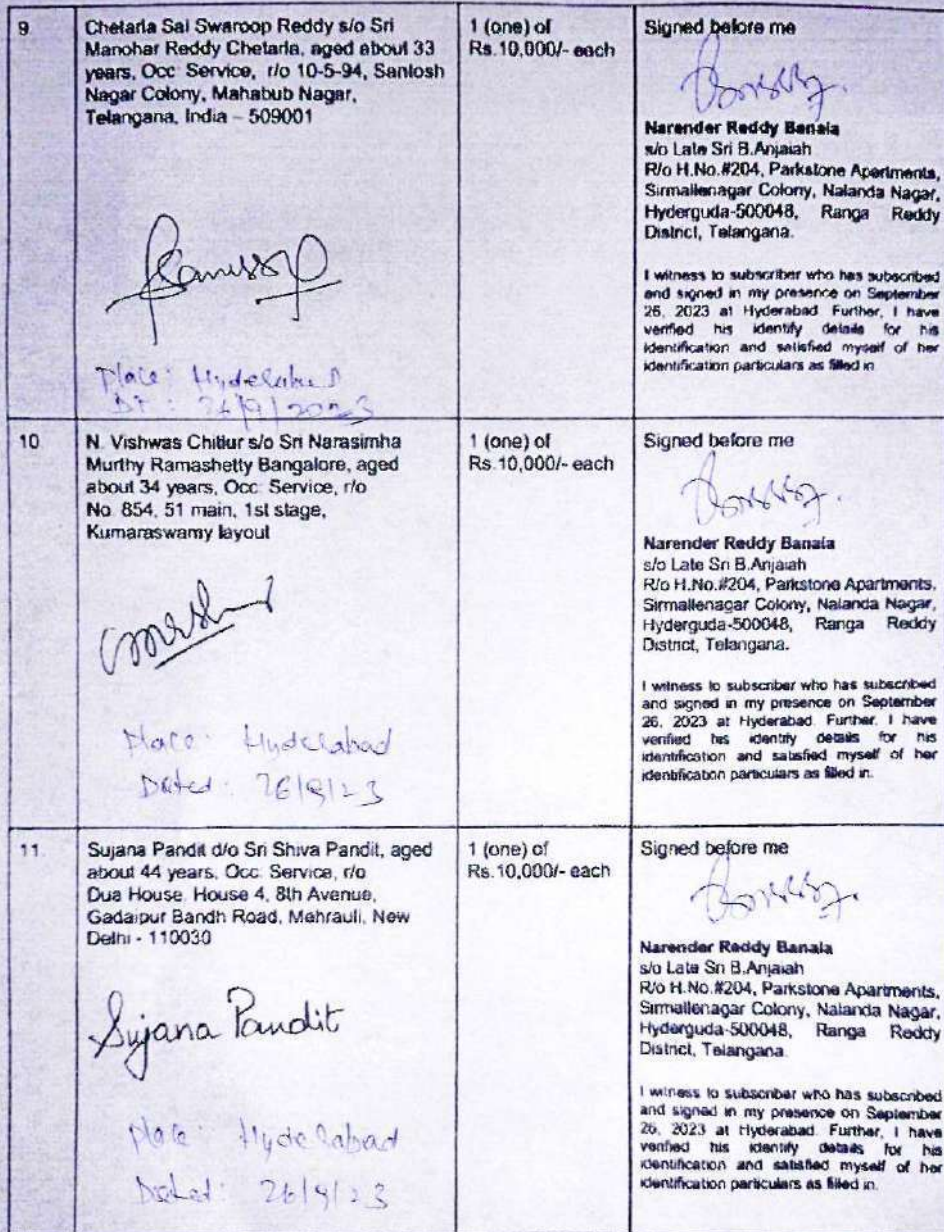 9.
Chetarla Sai Swaroop Reddy s/o Sri
Manohar Reddy Chetarla, aged about 33
years, Occ: Service, r/o 10-5-94, Santosh
Nagar Colony, Mahabub Nagar,
Telangana, India – 509001
Place: Hyderabad
Dt: 26/9/2023
1 (one) of
Rs.10,000/- each
Signed before me
Narender Reddy Banala
s/o Late Sri B.Anjaiah
R/o H.No.#204, Parkstone Apartments,
Sirmallenagar Colony, Nalanda Nagar,
Hyderguda-500048, Ranga Reddy
District, Telangana.
I witness to subscriber who has subscribed
and signed in my presence on September
26, 2023 at Hyderabad. Further, I have
verified his identify details for his
identification and satisfied myself of her
identification particulars as filled in.
10.
N. Vishwas Chittur s/o Sri Narasimha
Murthy Ramashetty Bangalore, aged
about 34 years, Occ: Service, r/o
No. 854, 51 main, 1st stage,
Kumaraswamy layout
Place: Hyderabad
Dated: 26/9/23
1 (one) of
Rs.10,000/- each
Signed before me
Narender Reddy Banala
s/o Late Sri B.Anjaiah
R/o H.No.#204, Parkstone Apartments,
Sirmallenagar Colony, Nalanda Nagar,
Hyderguda-500048, Ranga Reddy
District, Telangana.
I witness to subscriber who has subscribed
and signed in my presence on September
26, 2023 at Hyderabad. Further, I have
verified his identify details for his
identification and satisfied myself of her
identification particulars as filled in.
11.
Sujana Pandit d/o Sri Shiva Pandit, aged
about 44 years, Occ: Service, r/o
Dua House, House 4, 8th Avenue,
Gadaipur Bandh Road, Mehrauli, New
Delhi - 110030
Sujana Pandit
Place: Hyderabad
Dated: 26/9/23
1 (one) of
Rs.10,000/- each
Signed before me
Narender Reddy Banala
s/o Late Sri B.Anjaiah
R/o H.No.#204, Parkstone Apartments,
Sirmallenagar Colony, Nalanda Nagar,
Hyderguda-500048, Ranga Reddy
District, Telangana.
I witness to subscriber who has subscribed
and signed in my presence on September
26, 2023 at Hyderabad. Further, I have
verified his identify details for his
identification and satisfied myself of her
identification particulars as filled in.